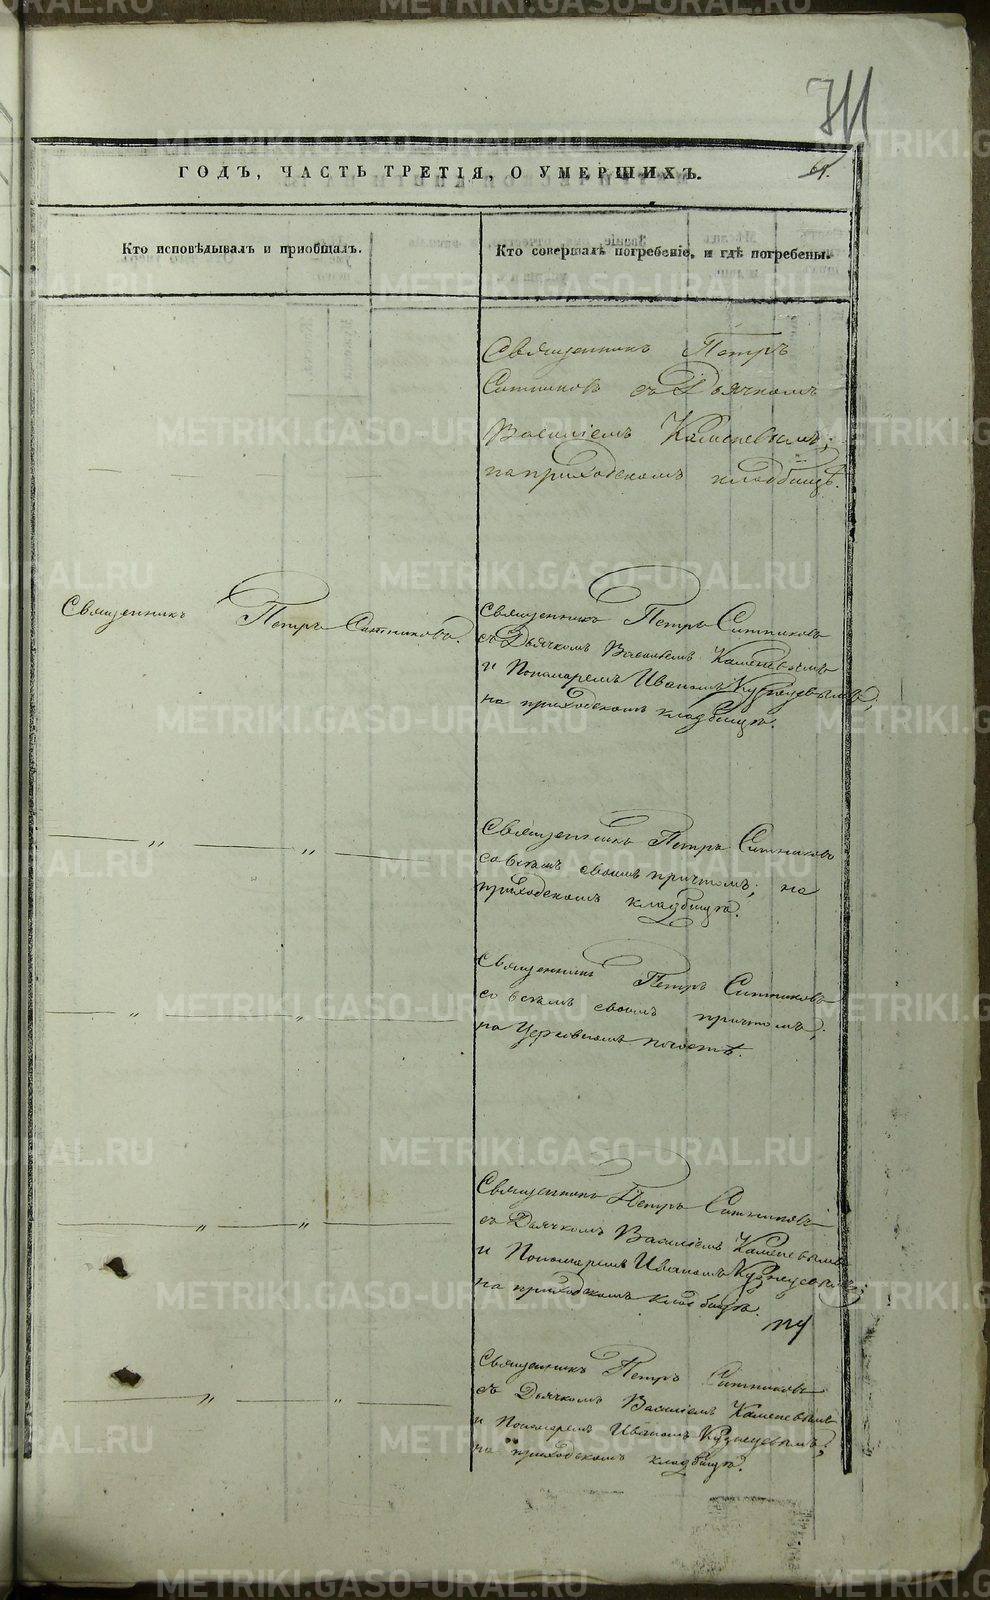 711
61.
ГОДЪ, ЧАСТЬ ТРЕТІЯ, О УМЕРШИХЪ.
Кто исповѣдывалъ и приобщалъ.
Кто совершалъ погребеніе, и гдѣ погребены.
Священникъ Петръ
Ситниковъ съ Дьячкомъ
Василіемъ Каменевымъ;
на приходскомъ кладбищѣ.
Священникъ Петръ Ситниковъ.
Священникъ Петръ Ситниковъ
съ Дьячкомъ Васильемъ Каменевымъ
и Пономаремъ Иваномъ Кузнецовымъ,
на приходскомъ кладбищѣ.
— „ — „ —
Священникъ Петръ Ситниковъ
со всемъ своимъ причтомъ; на
приходскомъ кладбищѣ.
— „ — „ —
Священникъ Петръ Ситниковъ
со всемъ своимъ причтомъ;
на Церковномъ погостѣ.
— „ — „ —
Священникъ Петръ Ситниковъ
съ Дьячкомъ Василіемъ Каменевымъ
и Пономаремъ Иваномъ Кузнецовымъ;
на приходскомъ кладбищѣ.
— „ — „ —
Священникъ Петръ Ситниковъ
съ Дьячкомъ Василіемъ Каменевымъ
и Пономаремъ Иваномъ Кузнецовымъ;
на приходскомъ кладбищѣ.
METRIKI.GASO-URAL.RU